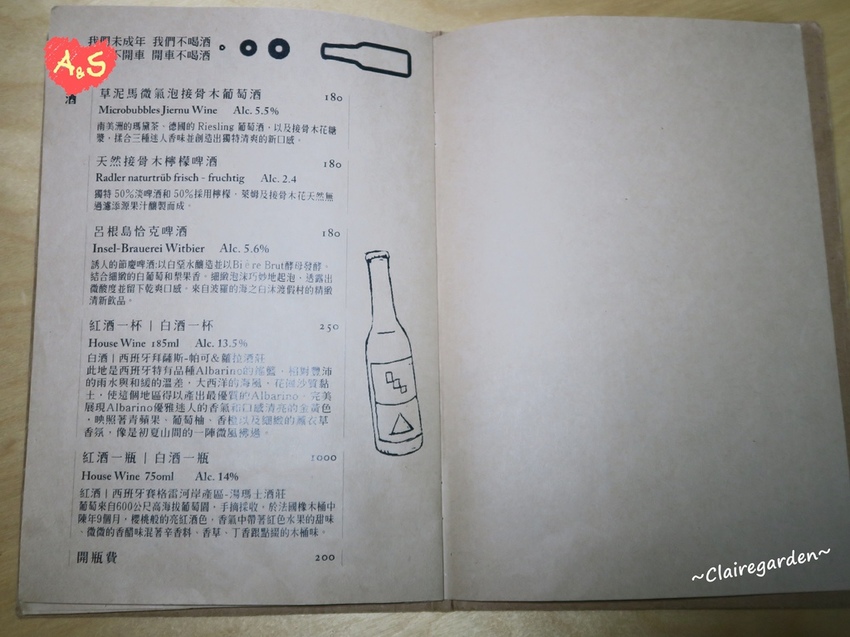 我們未成年 我們不喝酒
不開車 開車不喝酒
A&S
酒
草泥馬微氣泡接骨木葡萄酒 180
Microbubbles Jiernu Wine Alc. 5.5%
南美洲的瑪黛茶。德國的 Riesling 葡萄酒，以及接骨木花糖
漿，揉合三種迷人香味並創造出獨特清爽的新口感。
天然接骨木檸檬啤酒 180
Radler naturtrüb fisch - fruchtig Alc. 2.4
獨特 50%淡啤酒和 50%採用檸檬、萊姆及接骨木花天然無
過濾添源果汁釀製而成。
呂根島恰克啤酒 180
Insel-Brauerei Witbier Alc. 5.6%
誘人的節慶啤酒:以白堊水釀造並以Bière Brut酵母發酵，
結合細緻的白葡萄和梨果香。細緻泡沫巧妙地起泡，透露出
微酸度並留下乾爽口感。來自波羅的海之白沫渡假村的精緻
清新飲品。
紅酒一杯 | 白酒一杯 250
House Wine 185ml Alc. 13.5%
白酒 | 西班牙拜薩斯-帕可&蘿拉酒莊
此地是西班牙特有品種Albarino的搖籃，相對豐沛
的雨水與和緩的溫差，大西洋的海風，花崗沙質黏
土，使這個地區得以產出最優質的Albarino。完美
展現Albarino優雅迷人的香氣和口感清亮的金黃色
，映照著青蘋果，葡萄柚，香橙以及細緻的薰衣草
香氛，像是初夏山間的一陣微風拂過。
紅酒一瓶 | 白酒一瓶 1000
House Wine 750ml Alc. 14%
紅酒 | 西班牙賽格雷河岸產區-湯瑪士酒莊
葡萄來自600公尺高海拔葡萄園，手摘採收，於法國橡木桶中
陳年9個月，櫻桃般的亮紅酒色，香氣中帶著紅色水果的甜味
，微微的香醋味混著辛香料、香草、丁香跟點綴的木桶味。
開瓶費 200
~Clairegarden~